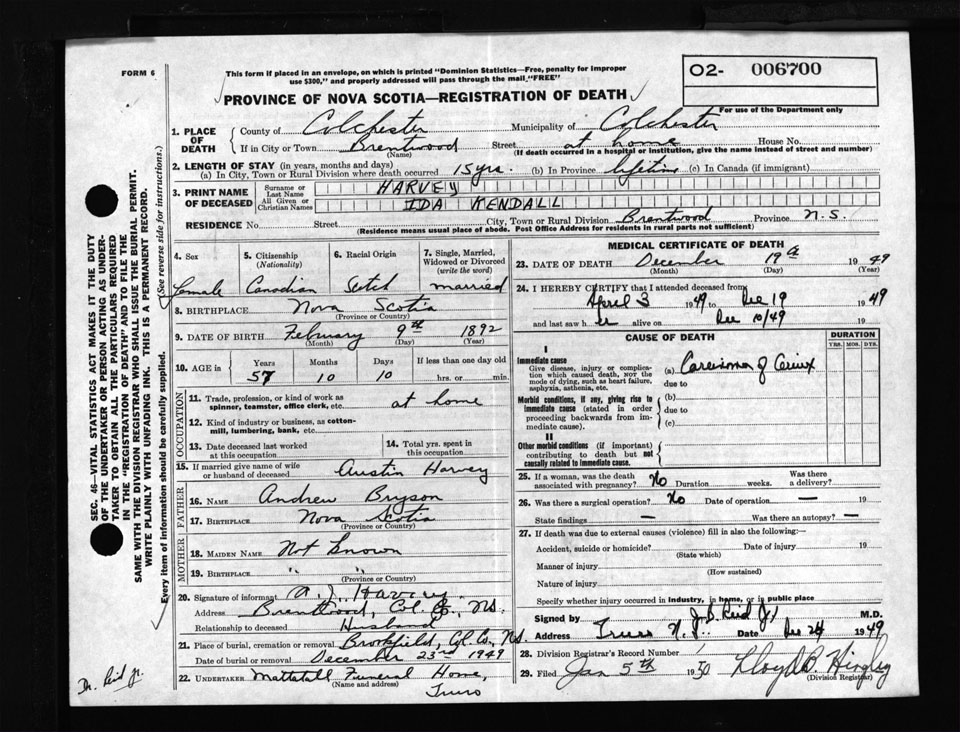 FORM 6
This form if placed in an envelope, on which is printed "Dominion Statistics—Free, penalty for improper
use $300," and properly addressed will pass through the mail "FREE"
O2- 006700
PROVINCE OF NOVA SCOTIA—REGISTRATION OF DEATH
For use of the Department only
1. PLACE OF DEATH
County of Colchester Municipality of Colchester
If in City or Town Brentwood Street at home House No.
(Name) (If death occurred in a hospital or institution, give the name instead of street and number)
2. LENGTH OF STAY (in years, months and days)
(a) In City, Town or Rural Division where death occurred 15 yrs. (b) In Province lifetime (c) In Canada (if immigrant)
3. PRINT NAME OF DECEASED
Surname or Last Name HARVEY
All Given or Christian Names IDA KENDALL
RESIDENCE No. Street City, Town or Rural Division Brentwood Province N.S.
(Residence means usual place of abode. Post Office Address for residents in rural parts not sufficient)
4. Sex
female
5. Citizenship
(Nationality)
Canadian
6. Racial Origin
Scotch
7. Single, Married,
Widowed or Divorced
(write the word)
married
8. BIRTHPLACE Nova Scotia
(Province or Country)
9. DATE OF BIRTH February 9th 1892
(Month) (Day) (Year)
10. AGE in
Years Months Days If less than one day old
57 10 10 hrs. or min.
OCCUPATION
11. Trade, profession, or kind of work as
spinner, teamster, office clerk, etc. at home
12. Kind of industry or business, as cotton-
mill, lumbering, bank, etc.
13. Date deceased last worked
at this occupation
14. Total yrs. spent in
this occupation
15. If married give name of wife
or husband of deceased Austin Harvey
FATHER
16. NAME Andrew Bryson
17. BIRTHPLACE Nova Scotia
(Province or Country)
MOTHER
18. MAIDEN NAME Not known
19. BIRTHPLACE " "
(Province or Country)
20. Signature of informant A. J. Harvey
Address Brentwood, Col. Co., N.S.
Relationship to deceased Husband
21. Place of burial, cremation or removal Brookfield, Col. Co., N.S.
Date of burial or removal December 23rd 1949
22. UNDERTAKER Mattatall Funeral Home,
(Name and address) Truro
MEDICAL CERTIFICATE OF DEATH
23. DATE OF DEATH December 19 1949
(Month) (Day) (Year)
24. I HEREBY CERTIFY that I attended deceased from
April 3 1949 to Dec 19 1949
and last saw her alive on Dec 10/49 19
CAUSE OF DEATH
DURATION
YRS. MOS. DYS.
I
Immediate cause
Give disease, injury or complica-
tion which caused death, NOT the
mode of dying, such as heart failure,
asphyxia, asthenia, etc.
(a) Carcinoma of Cervix
due to
Morbid conditions, if any, giving rise to
immediate cause (stated in order
proceeding backwards from im-
mediate cause).
(b)
due to
(c)
II
Other morbid conditions (if important)
contributing to death but not
causally related to immediate cause.
25. If a woman, was the death
associated with pregnancy? No Duration weeks. Was there
a delivery?
26. Was there a surgical operation? No Date of operation — 19
State findings — Was there an autopsy? —
27. If death was due to external causes (violence) fill in also the following:—
Accident, suicide or homicide? Date of injury 19
(State which)
Manner of injury
(How sustained)
Nature of injury
Specify whether injury occurred in industry, in home, or in public place
Signed by J. B. Reid Jr M.D.
Address Truro N.S. Date Dec 24 1949
28. Division Registrar's Record Number
29. Filed Jan 5th 1950 Lloyd B. Hingley
(Division Registrar)
SEC. 46—VITAL STATISTICS ACT MAKES IT THE DUTY
OF THE UNDERTAKER OR PERSON ACTING AS UNDER-
TAKER TO OBTAIN ALL THE PARTICULARS REQUIRED
IN THE "REGISTRATION OF DEATH" AND TO FILE THE
SAME WITH THE DIVISION REGISTRAR WHO SHALL ISSUE THE BURIAL PERMIT.
WRITE PLAINLY WITH UNFADING INK. THIS IS A PERMANENT RECORD.
Every item of information should be carefully supplied. (See reverse side for instructions.)
Dr. Reid Jr.